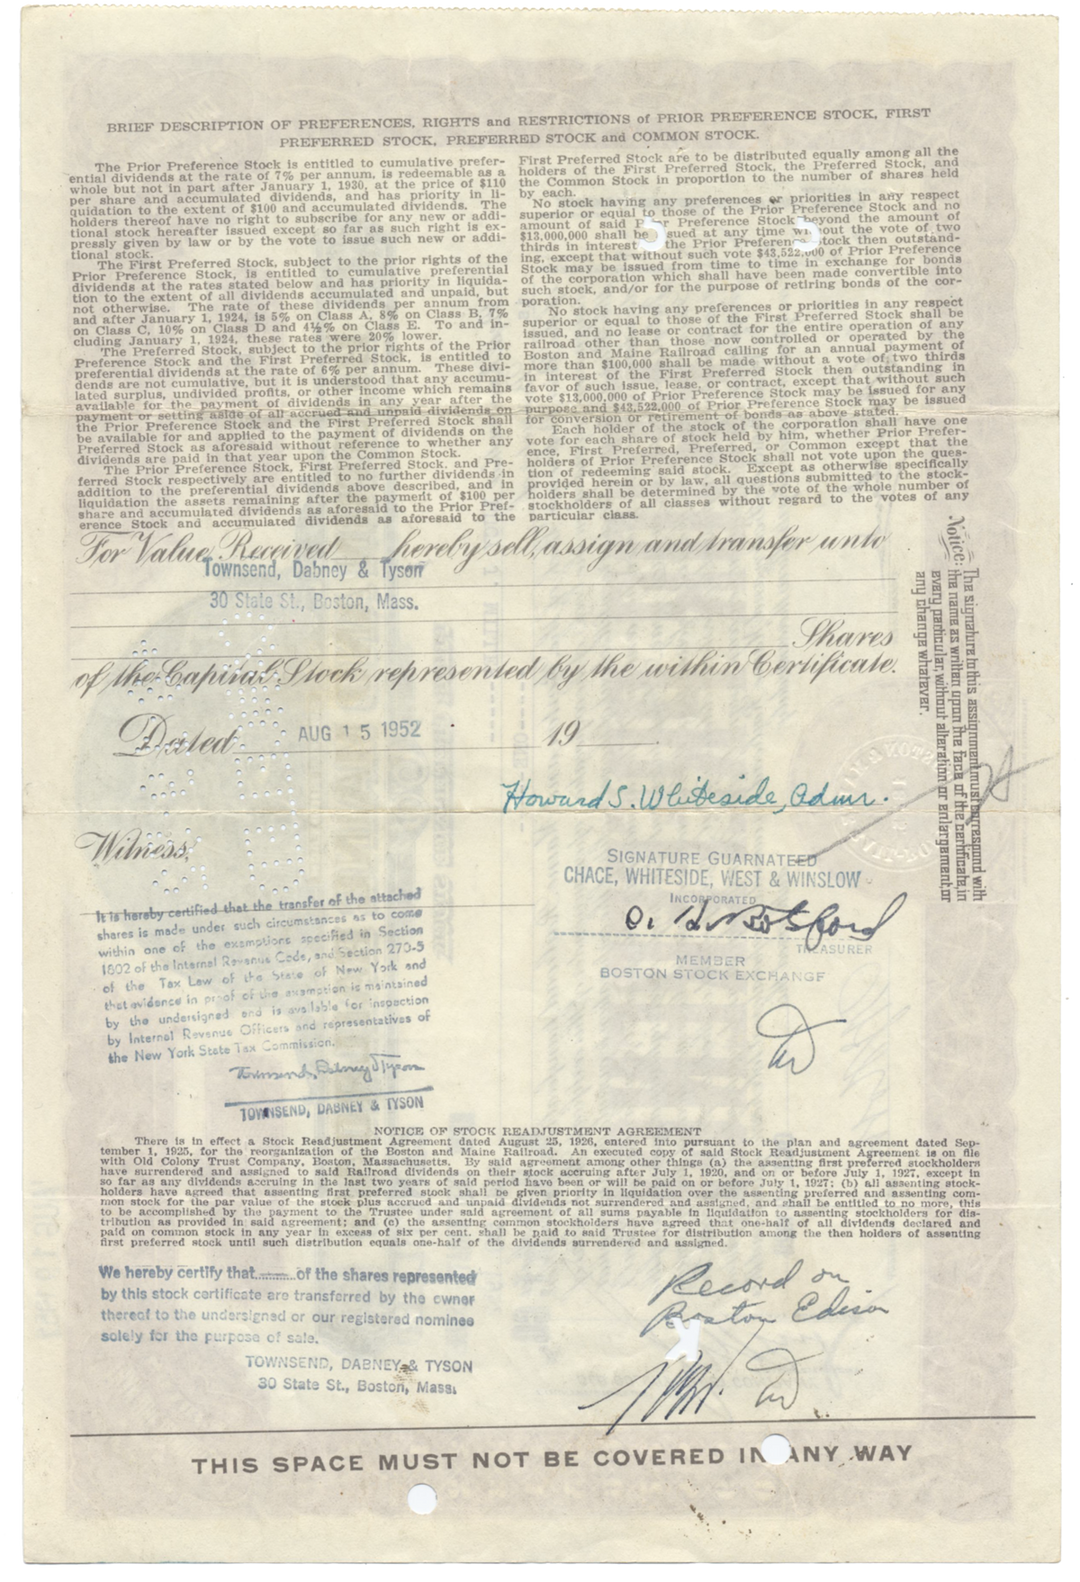 BRIEF DESCRIPTION OF PREFERENCES, RIGHTS and RESTRICTIONS of PRIOR PREFERENCE STOCK, FIRST
PREFERRED STOCK, PREFERRED STOCK and COMMON STOCK.
The Prior Preference Stock is entitled to cumulative prefer-
ential dividends at the rate of 7% per annum, is redeemable as a
whole but not in part after January 1, 1930, at the price of $110
per share and accumulated dividends, and has priority in li-
quidation to the extent of $100 and accumulated dividends. The
holders thereof have no right to subscribe for any new or addi-
tional stock hereafter issued except so far as such right is ex-
pressly given by law or by the vote to issue such new or addi-
tional stock.
The First Preferred Stock, subject to the prior rights of the
Prior Preference Stock, is entitled to cumulative preferential
dividends at the rates stated below and has priority in liquida-
tion to the extent of all dividends accumulated and unpaid, but
not otherwise. The rate of these dividends per annum from
and after January 1, 1924, is 5% on Class A, 8% on Class B, 7%
on Class C, 10% on Class D and 4½% on Class E. To and in-
cluding January 1, 1924, these rates were 20% lower.
The Preferred Stock, subject to the prior rights of the Prior
Preference Stock and the First Preferred Stock, is entitled to
preferential dividends at the rate of 6% per annum. These divi-
dends are not cumulative, but it is understood that any accumu-
lated surplus, undivided profits, or other income which remains
available for the payment of dividends in any year after the
payment or setting aside of all accrued and unpaid dividends on
the Prior Preference Stock and the First Preferred Stock shall
be available for and applied to the payment of dividends on the
Preferred Stock as aforesaid without reference to whether any
dividends are paid in that year upon the Common Stock.
The Prior Preference Stock, First Preferred Stock, and Pre-
ferred Stock respectively are entitled to no further dividends in
addition to the preferential dividends above described, and in
liquidation the assets remaining after the payment of $100 per
share and accumulated dividends as aforesaid to the Prior Pref-
erence Stock and accumulated dividends as aforesaid to the
First Preferred Stock are to be distributed equally among all the
holders of the First Preferred Stock, the Preferred Stock, and
the Common Stock in proportion to the number of shares held
by each.
No stock having any preferences or priorities in any respect
superior or equal to those of the Prior Preference Stock and no
amount of said Prior Preference Stock beyond the amount of
$13,000,000 shall be issued at any time without the vote of two
thirds in interest of the Prior Preference Stock then outstand-
ing, except that without such vote $43,522,000 of Prior Preference
Stock may be issued from time to time in exchange for bonds
of the corporation which shall have been made convertible into
such stock, and/or for the purpose of retiring bonds of the cor-
poration.
No stock having any preferences or priorities in any respect
superior or equal to those of the First Preferred Stock shall be
issued, and no lease or contract for the entire operation of any
railroad other than those now controlled or operated by the
Boston and Maine Railroad calling for an annual payment of
more than $100,000 shall be made without a vote of two thirds
in interest of the First Preferred Stock then outstanding in
favor of such issue, lease, or contract, except that without such
vote $13,000,000 of Prior Preference Stock may be issued for any
purpose and $43,522,000 of Prior Preference Stock may be issued
for conversion or retirement of bonds as above stated.
Each holder of the stock of the corporation shall have one
vote for each share of stock held by him, whether Prior Prefer-
ence, First Preferred, Preferred, or Common except that the
holders of Prior Preference Stock shall not vote upon the ques-
tion of redeeming said stock. Except as otherwise specifically
provided herein or by law, all questions submitted to the stock-
holders shall be determined by the vote of the whole number of
stockholders of all classes without regard to the votes of any
particular class.
For Value Received hereby sell, assign and transfer unto
Townsend, Dabney & Tyson
30 State St., Boston, Mass.
Shares
of the Capital Stock represented by the within Certificate.
Dated AUG 15 1952 19
Howard S. Whiteside, Admr.
Notice: The signature to this assignment must correspond with
the name as written upon the face of the certificate, in
every particular, without alteration or enlargement, or
any change whatever.
Witness,
SIGNATURE GUARNATEED
CHACE, WHITESIDE, WEST & WINSLOW
INCORPORATED
TREASURER
MEMBER
BOSTON STOCK EXCHANGE
It is hereby certified that the transfer of the attached
shares is made under such circumstances as to come
within one of the exemptions specified in Section
1802 of the Internal Revenue Code, and Section 270-5
of the Tax Law of the State of New York and
that evidence in proof of the exemption is maintained
by the undersigned and is available for inspection
by Internal Revenue Officers and representatives of
the New York State Tax Commission.
Townsend, Dabney & Tyson
TOWNSEND, DABNEY & TYSON
NOTICE OF STOCK READJUSTMENT AGREEMENT
There is in effect a Stock Readjustment Agreement dated August 25, 1926, entered into pursuant to the plan and agreement dated Sep-
tember 1, 1925, for the reorganization of the Boston and Maine Railroad. An executed copy of said Stock Readjustment Agreement is on file
with Old Colony Trust Company, Boston, Massachusetts. By said agreement among other things (a) the assenting first preferred stockholders
have surrendered and assigned to said Railroad dividends on their stock accruing after July 1, 1920, and on or before July 1, 1927, except in
so far as any dividends accruing in the last two years of said period have been or will be paid on or before July 1, 1927; (b) all assenting stock-
holders have agreed that assenting first preferred stock shall be given priority in liquidation over the assenting preferred and assenting com-
mon stock for the par value of the stock plus accrued and unpaid dividends not surrendered and assigned, and shall be entitled to no more, this
to be accomplished by the payment to the Trustee under said agreement of all sums payable in liquidation to assenting stockholders for dis-
tribution as provided in said agreement; and (c) the assenting common stockholders have agreed that one-half of all dividends declared and
paid on common stock in any year in excess of six per cent. shall be paid to said Trustee for distribution among the then holders of assenting
first preferred stock until such distribution equals one-half of the dividends surrendered and assigned.
We hereby certify that of the shares represented
by this stock certificate are transferred by the owner
thereof to the undersigned or our registered nominee
solely for the purpose of sale.
TOWNSEND, DABNEY & TYSON
30 State St., Boston, Mass.
Record on
Boston Edison
THIS SPACE MUST NOT BE COVERED IN ANY WAY